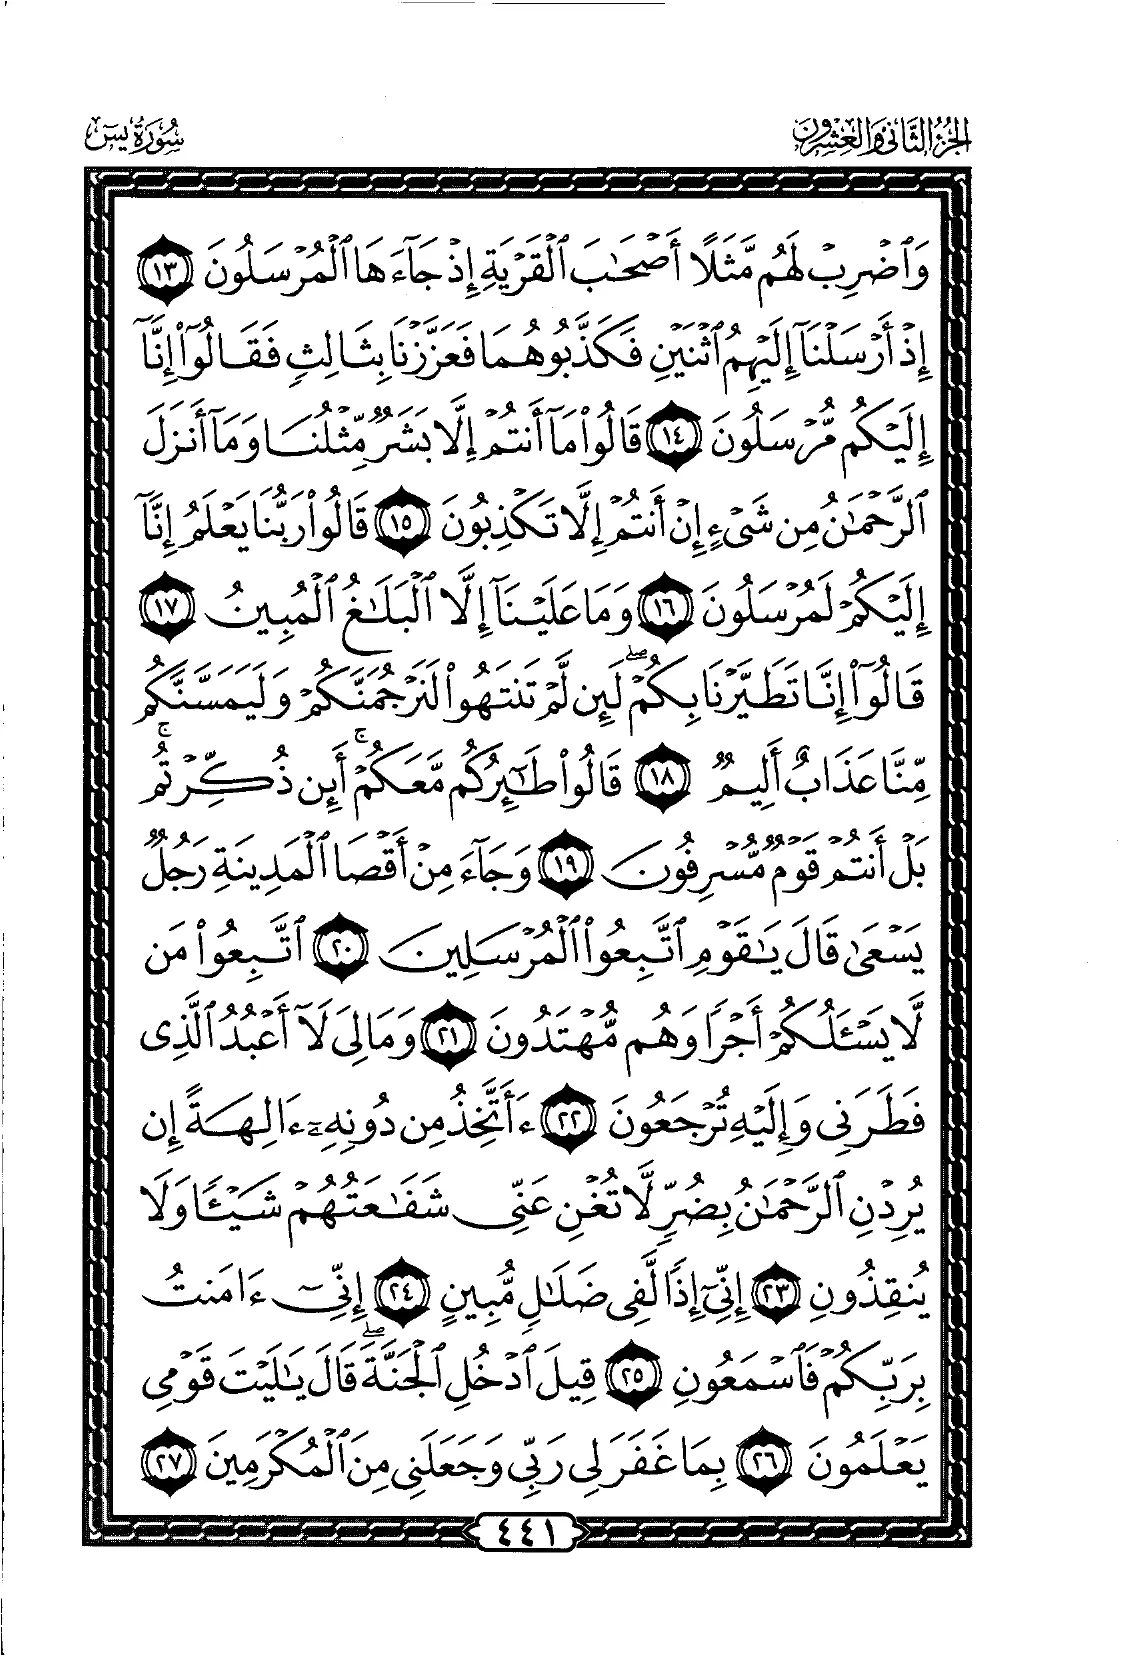 الجزء الثاني والعشرون
سورة يس
وَٱضۡرِبۡ لَهُم مَّثَلًا أَصۡحَٰبَ ٱلۡقَرۡيَةِ إِذۡ جَآءَهَا ٱلۡمُرۡسَلُونَ ١٣
إِذۡ أَرۡسَلۡنَآ إِلَيۡهِمُ ٱثۡنَيۡنِ فَكَذَّبُوهُمَا فَعَزَّزۡنَا بِثَالِثٖ فَقَالُوٓاْ إِنَّآ
إِلَيۡكُم مُّرۡسَلُونَ ١٤ قَالُواْ مَآ أَنتُمۡ إِلَّا بَشَرٞ مِّثۡلُنَا وَمَآ أَنزَلَ
ٱلرَّحۡمَٰنُ مِن شَيۡءٍ إِنۡ أَنتُمۡ إِلَّا تَكۡذِبُونَ ١٥ قَالُواْ رَبُّنَا يَعۡلَمُ إِنَّآ
إِلَيۡكُمۡ لَمُرۡسَلُونَ ١٦ وَمَا عَلَيۡنَآ إِلَّا ٱلۡبَلَٰغُ ٱلۡمُبِينُ ١٧
قَالُوٓاْ إِنَّا تَطَيَّرۡنَا بِكُمۡۖ لَئِن لَّمۡ تَنتَهُواْ لَنَرۡجُمَنَّكُمۡ وَلَيَمَسَّنَّكُم
مِّنَّا عَذَابٌ أَلِيمٞ ١٨ قَالُواْ طَٰٓئِرُكُم مَّعَكُمۡۚ أَئِن ذُكِّرۡتُمۚ
بَلۡ أَنتُمۡ قَوۡمٞ مُّسۡرِفُونَ ١٩ وَجَآءَ مِنۡ أَقۡصَا ٱلۡمَدِينَةِ رَجُلٞ
يَسۡعَىٰ قَالَ يَٰقَوۡمِ ٱتَّبِعُواْ ٱلۡمُرۡسَلِينَ ٢٠ ٱتَّبِعُواْ مَن
لَّا يَسۡـَٔلُكُمۡ أَجۡرٗا وَهُم مُّهۡتَدُونَ ٢١ وَمَالِيَ لَآ أَعۡبُدُ ٱلَّذِي
فَطَرَنِي وَإِلَيۡهِ تُرۡجَعُونَ ٢٢ ءَأَتَّخِذُ مِن دُونِهِۦٓ ءَالِهَةً إِن
يُرِدۡنِ ٱلرَّحۡمَٰنُ بِضُرّٖ لَّا تُغۡنِ عَنِّي شَفَٰعَتُهُمۡ شَيۡـٔٗا وَلَا
يُنقِذُونِ ٢٣ إِنِّيٓ إِذٗا لَّفِي ضَلَٰلٖ مُّبِينٍ ٢٤ إِنِّيٓ ءَامَنتُ
بِرَبِّكُمۡ فَٱسۡمَعُونِ ٢٥ قِيلَ ٱدۡخُلِ ٱلۡجَنَّةَۖ قَالَ يَٰلَيۡتَ قَوۡمِي
يَعۡلَمُونَ ٢٦ بِمَا غَفَرَ لِي رَبِّي وَجَعَلَنِي مِنَ ٱلۡمُكۡرَمِينَ ٢٧
٤٤١